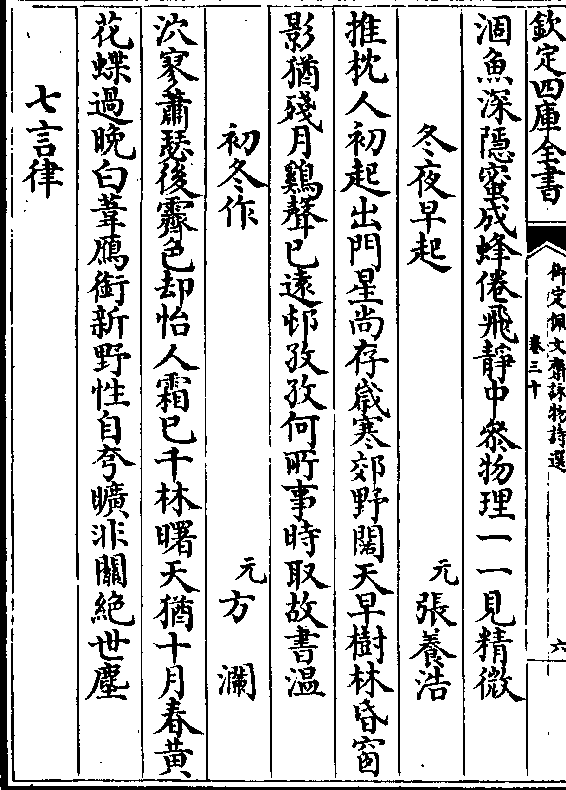 欽定四庫全書
御定佩文齋詠物詩選
卷三十
六
涸魚深隱蜜成蜂倦飛靜中叅物理一一見精微
冬夜早起
元張養浩
推枕人初起出門星尚存歲寒郊野闊天早樹林昏窗
影猶殘月鷄聲已遠邨孜孜何所事時取故書温
初冬作
元方瀾
泬寥蕭瑟後霽色却怡人霜已千林曙天猶十月春黃
花蝶過晚白葦鴈銜新野性自夸曠非關絶世塵
七言律